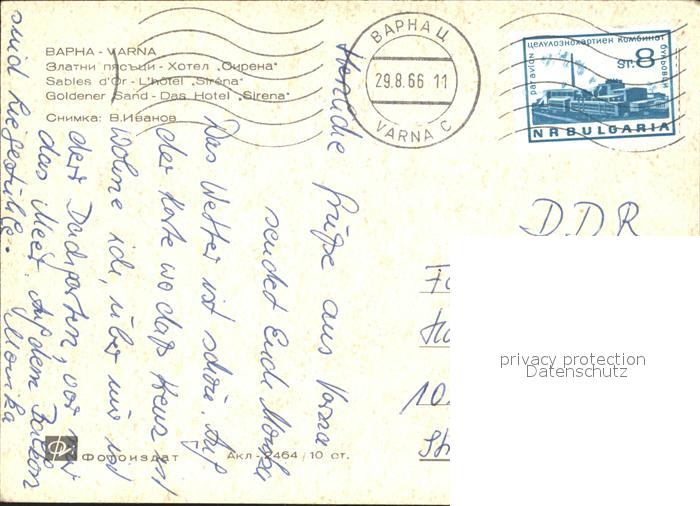 ВАРНА - VARNA
Златни пясъци - Хотел „Сирена"
Sables d'Or - L'hôtel „Siréna"
Goldener Sand - Das Hotel „Sirena"
Снимка: В.Иванов
ВАРНА Ц
29.8.66 11
VARNA C
par avion
целулознохартиен комбинат
8 st.
NRBULGARIA
Herzliche Grüße aus Varna
sendet Euch Monika
Das Wetter ist schön. Auf
der Karte wo das Kreuz ist
wohne ich, über mir ist
der Dachgarten, vor mir
das Meer. Auf dem Balkon
sind Liegestühle.
Monika
DDR
10
privacy protection
Datenschutz
Фотоиздат
Акл-2464 / 10 ст.